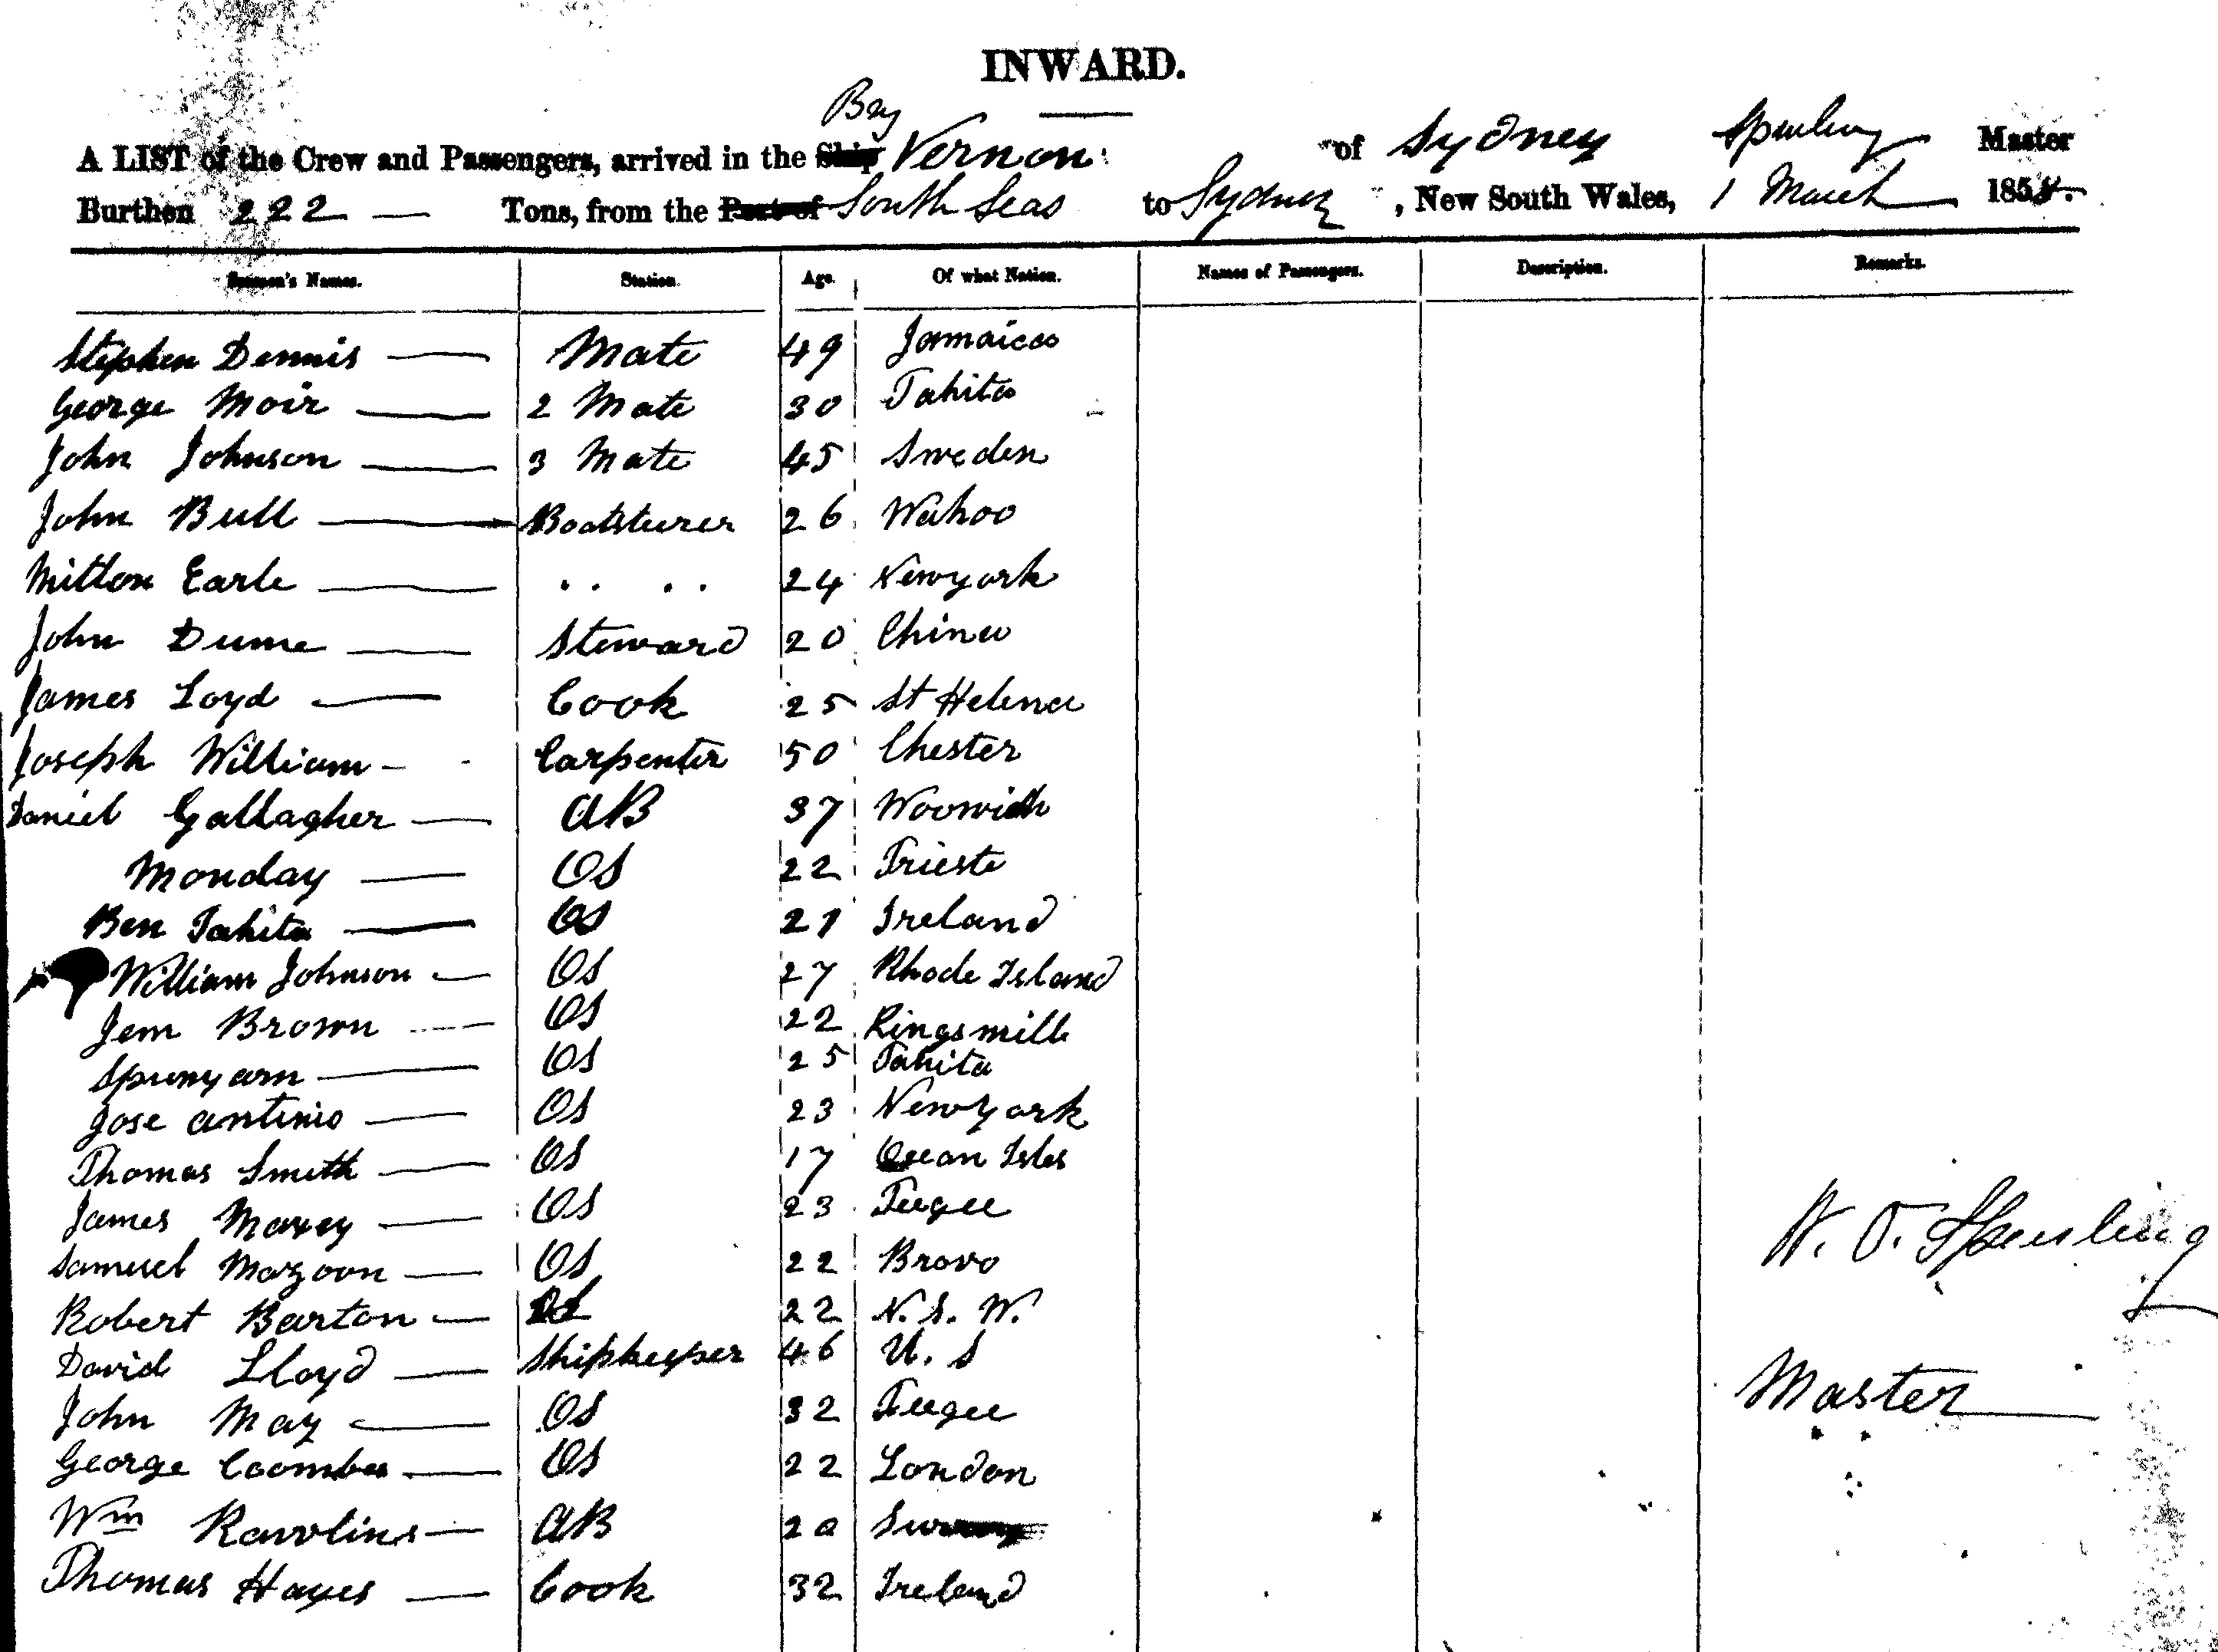 INWARD.
A LIST of the Crew and Passengers, arrived in the Ship Vernon of Sydney Master
Burthen 222 — Tons, from the Port of South Seas to Sydney, New South Wales, 1 March 185
Seamen's Names. Station. Age. Of what Nation. Names of Passengers. Description. Remarks.
Stephen Dennis — Mate 49 Jamaica
George Moir — 2 Mate 30 Tahita
John Johnson — 3 Mate 45 Sweden
John Bull — Boatsteerer 26 Wahoo
Milton Earle — .. .. 24 Newyork
John Dume — Steward 20 China
James Loyd — Cook 25 St Helena
Joseph William — Carpenter 50 Chester
Daniel Gallagher — AB 37 Woowich
Monday — OS 22 Trieste
Ben Tahita — OS 21 Ireland
William Johnson — OS 27 Rhode Island
Jem Brown — OS 22 Kingsmill
Spunyarn — OS 25 Tahita
Jose Antinio — OS 23 New York
Thomas Smith — OS 17 Ocean Isles
James — OS 23 Feegee
Samuel — OS 22 Bravo
Robert Barton — 22 N. S. W.
David Lloyd — Shipkeeper 46 U. S
John May — OS 32 Feegee
George Coombes — OS 22 London
Wm Rawlins — AB 20
Thomas Hayes — Cook 32 Ireland
Master